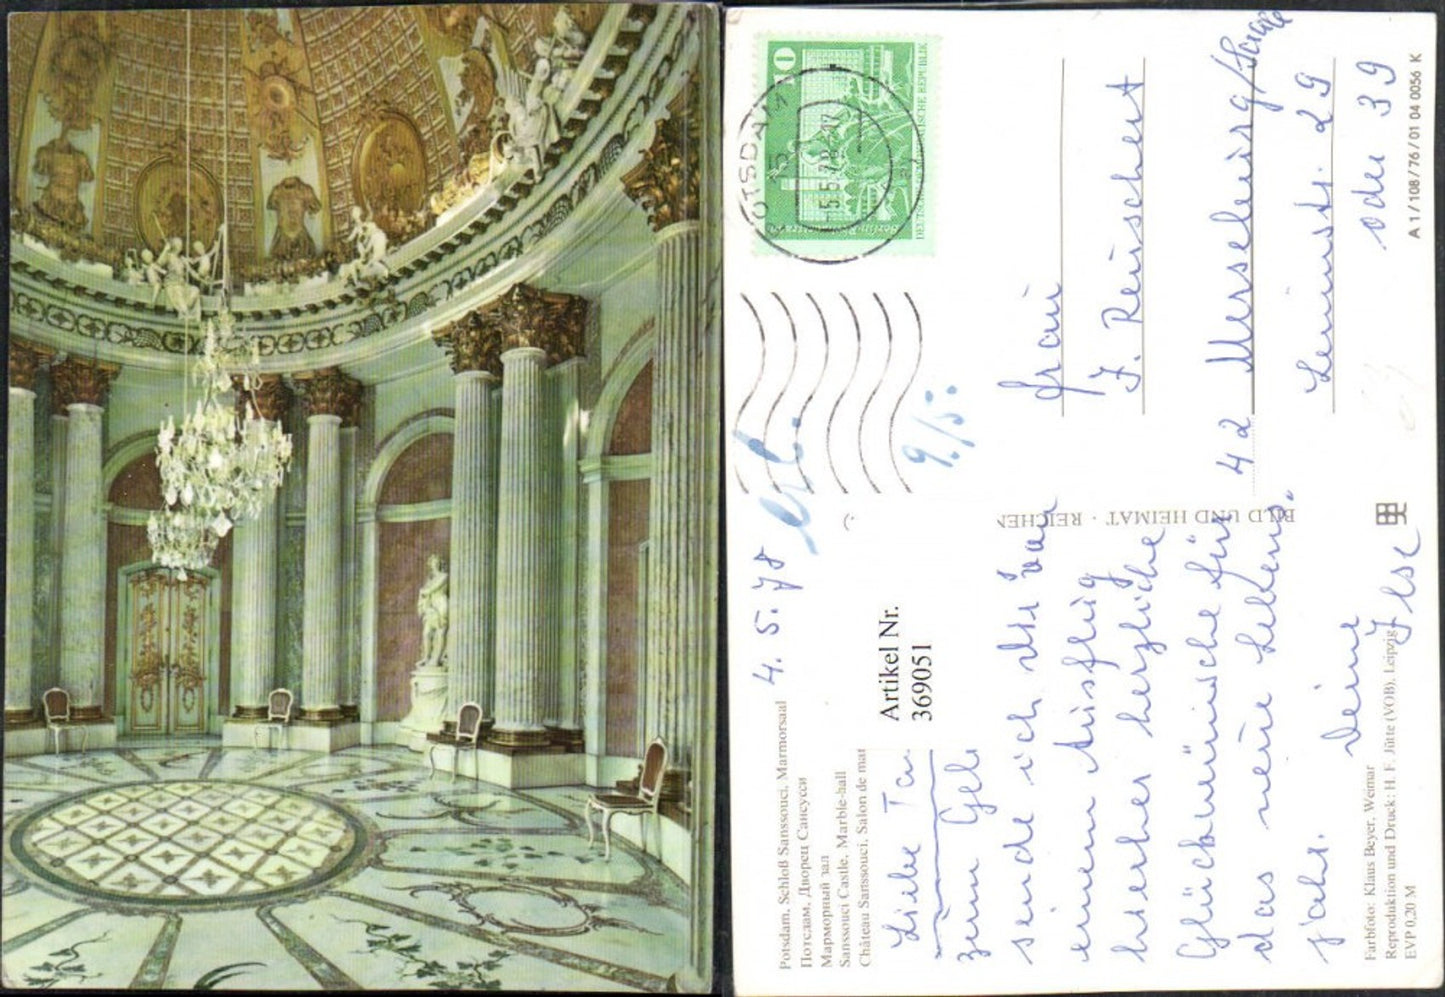 Potsdam, Schloß Sanssouci, Marmorsaal
Потсдам, Дворец Сансуси
Марморный зал
Sanssouci Castle, Marble-hall
Château Sanssouci, Salon de mar
4. 5. 78
Artikel Nr.
369051
Liebe
zum Geb
sende ich Dir von
einem Ausflug
hierher herzliche
Glückwünsche für
das neue Lebens-
jahr. Deine
Ilse
Farbfoto: Klaus Beyer, Weimar
Reproduktion und Druck: H. F. Jütte (VOB), Leipzig
EVP 0,20 M
BILD UND HEIMAT · REICHEN
10
POTSDAM 1
15
-5.5.78-
DEUTSCHE DEMOKRATISCHE REPUBLIK
9./5.
Frau
J. Reuschert
42 Merseburg/Saale
Leninstr. 29
oder 39
A 1/108/76/01 04 0056 K